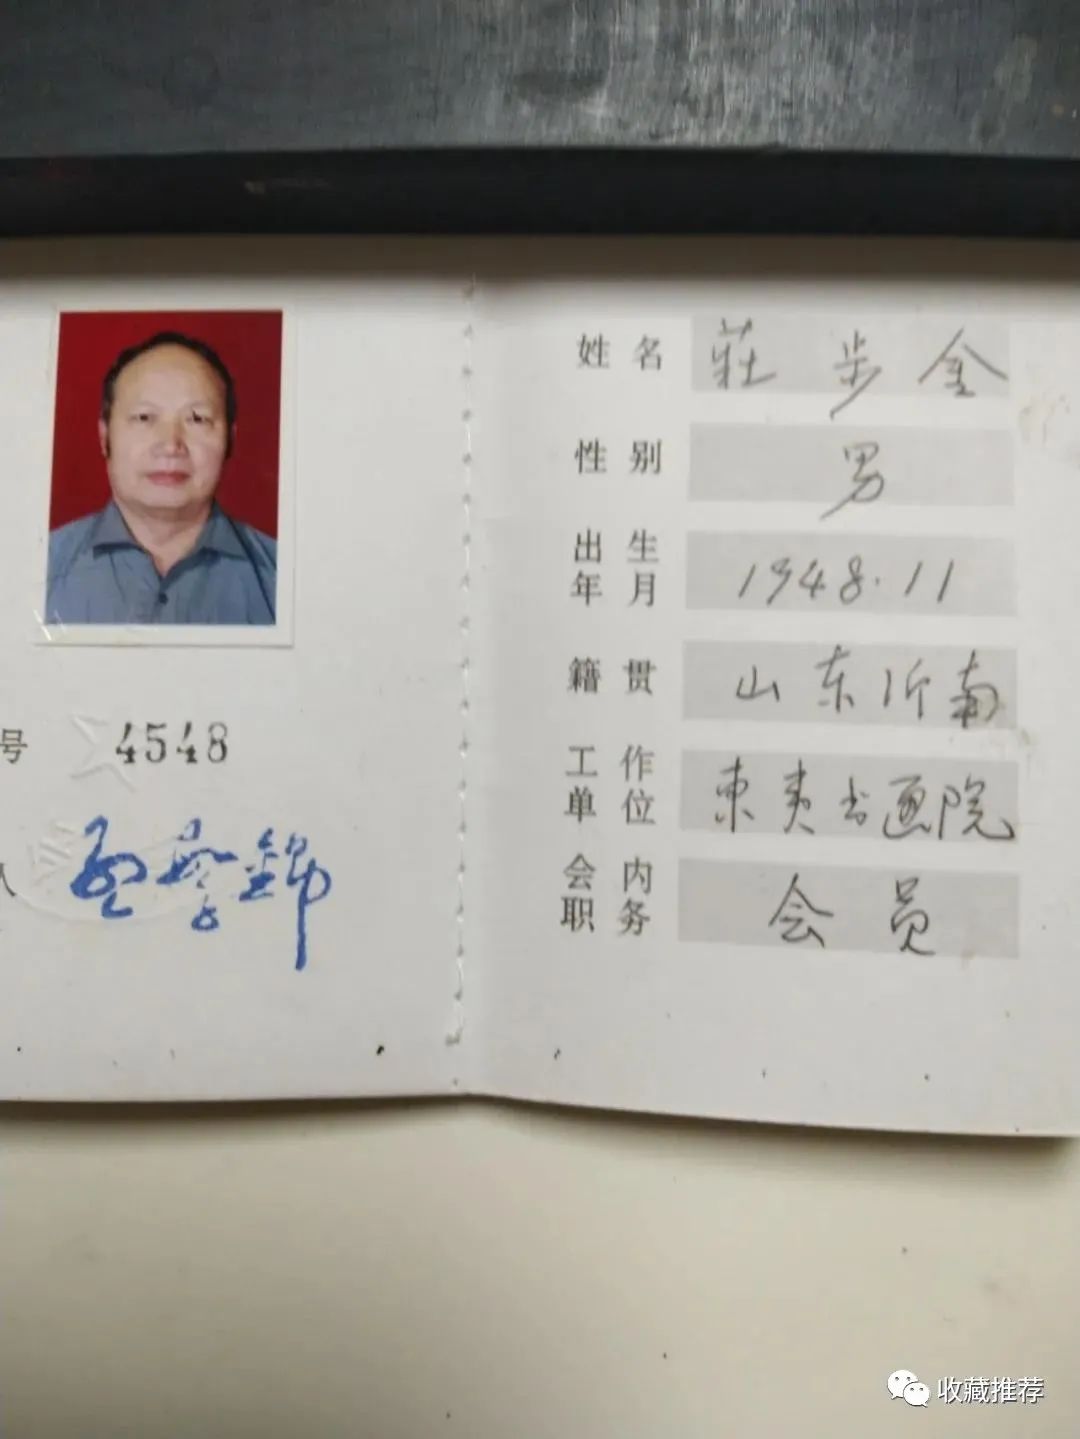 号 4548
人
姓名 莊步金
性别 男
出生年月 1948.11
籍贯 山东沂南
工作单位 東夷书画院
会内职务 会员
收藏推荐